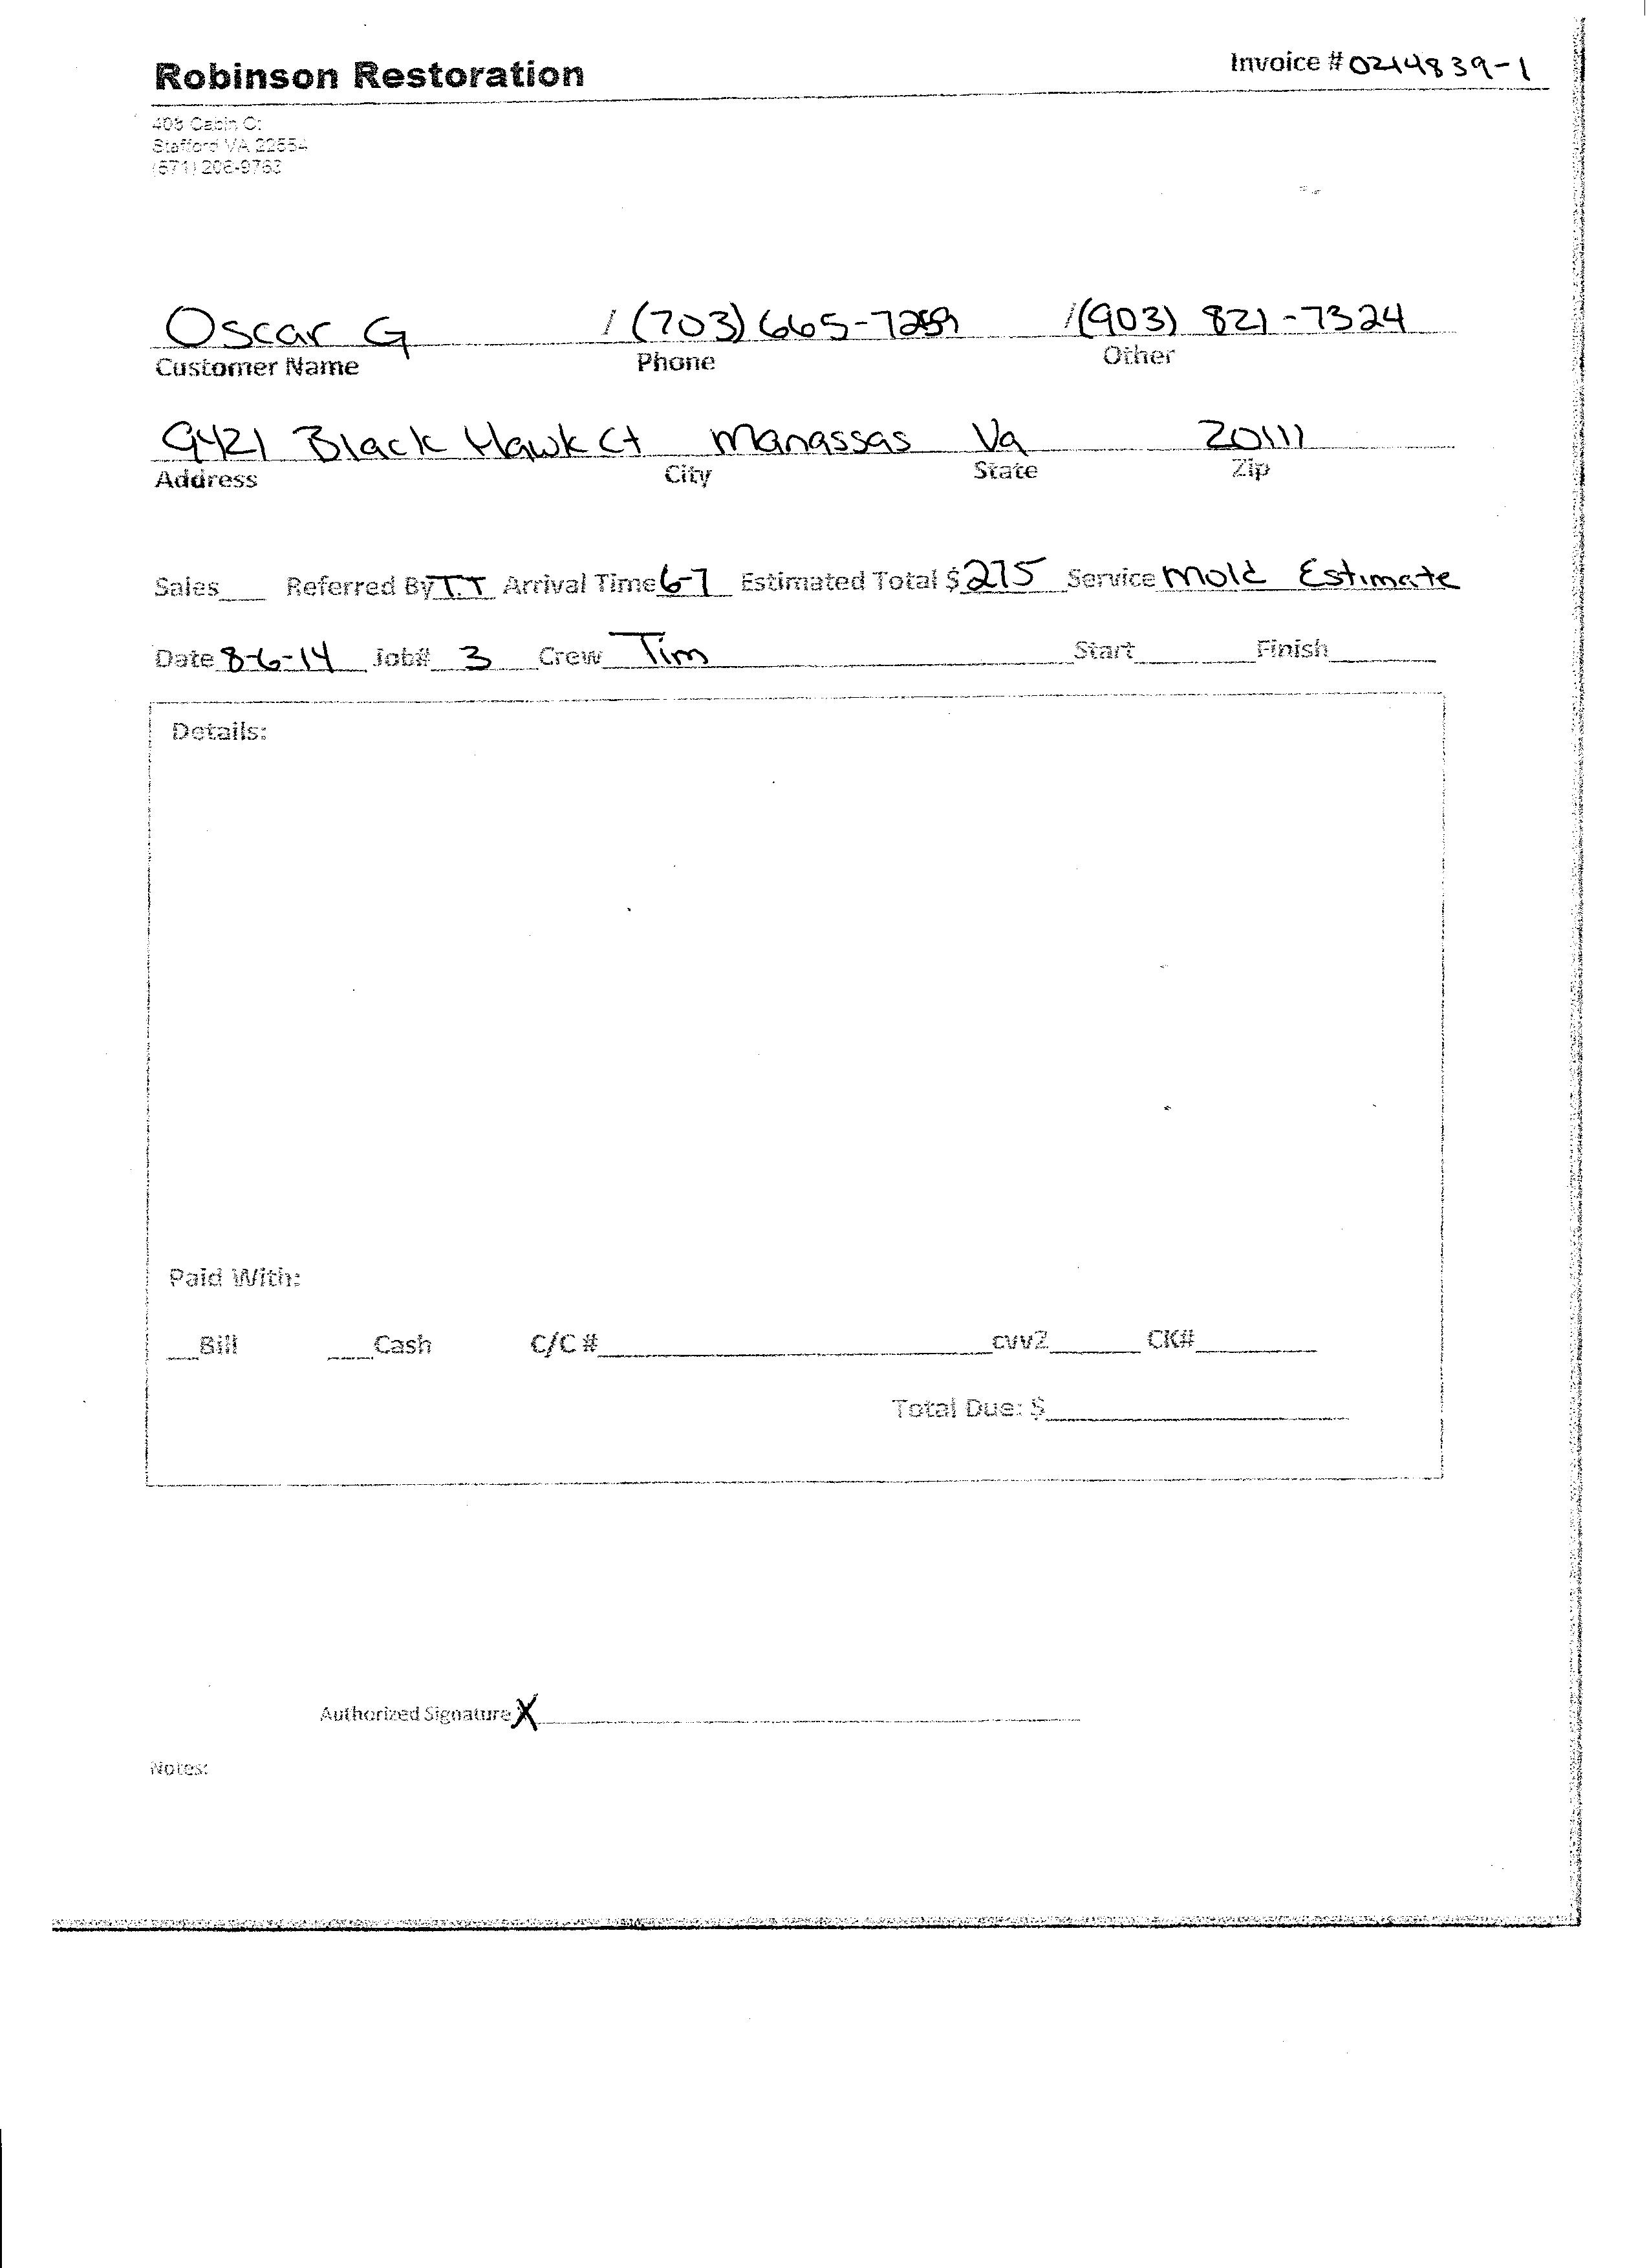 Robinson Restoration Invoice # 0214839-1
408 Cabin Ct
Stafford VA 22554
(571) 206-9763
Oscar G / (703) 665-7259 / (903) 821-7324
Customer Name Phone Other
9421 Black Hawk Ct Manassas Va 20111
Address City State Zip
Sales___ Referred By T.T Arrival Time 6-7 Estimated Total $ 275 Service Mold Estimate
Date 8-6-14 Job# 3 Crew Tim Start______ Finish______
Details:
Paid With:
__Bill ___Cash C/C #______ cvv2______ CK#______
Total Due: $______
Authorized Signature X
Notes: